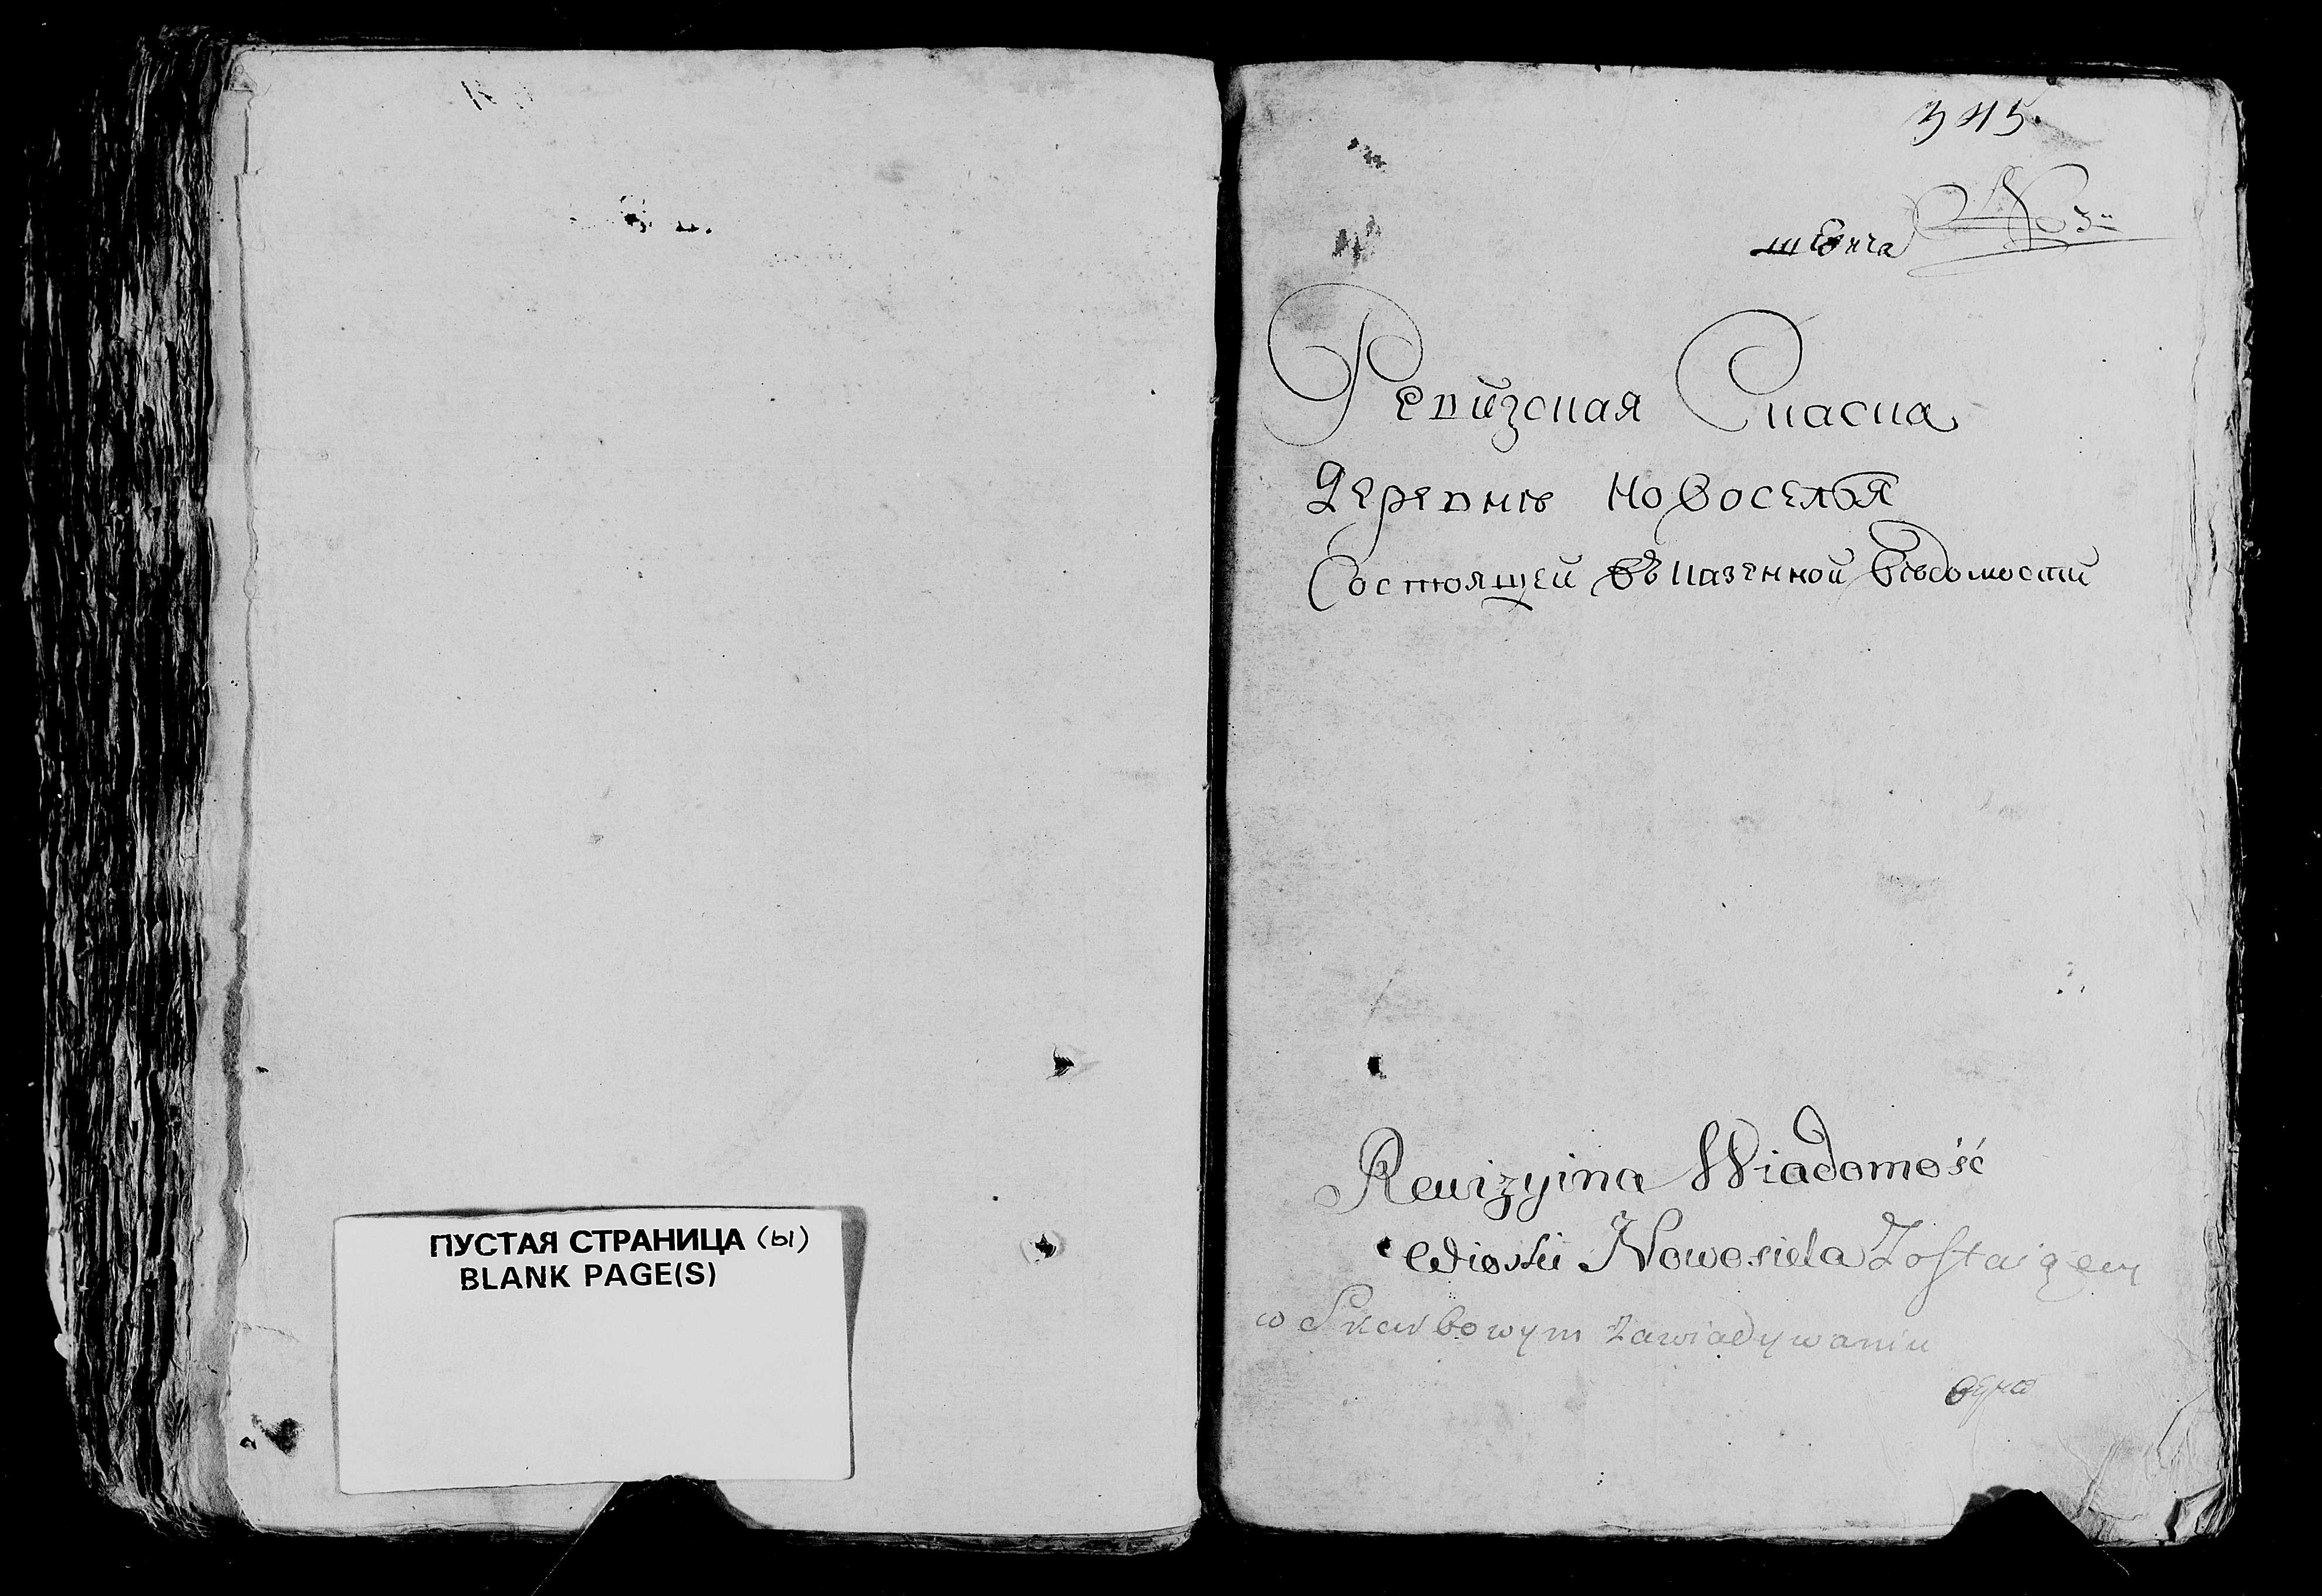 ПУСТАЯ СТРАНИЦА (ы)
BLANK PAGE(S)
345.
№ 3
Ревизская Скаска
Деревнѣ Новоселья
Состоящей Въ Казенной Вѣдомости
Rewizyina Wiadomość
Wioski Nowosiela Zostaiącey
w Skarbowym zawiadywaniu